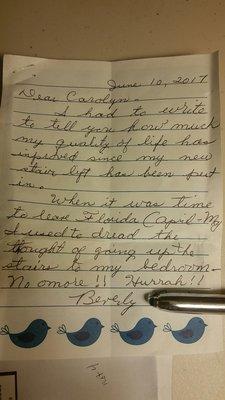 June 10, 2017
Dear Carolyn -
I had to write
to tell you how much
my quality of life has
improved since my new
stair lift has been put
in.
When it was time
to leave Florida (April-My
I used to dread the
thought of going up the
stairs to my bedroom -
No more!! Hurrah!!
Beverly